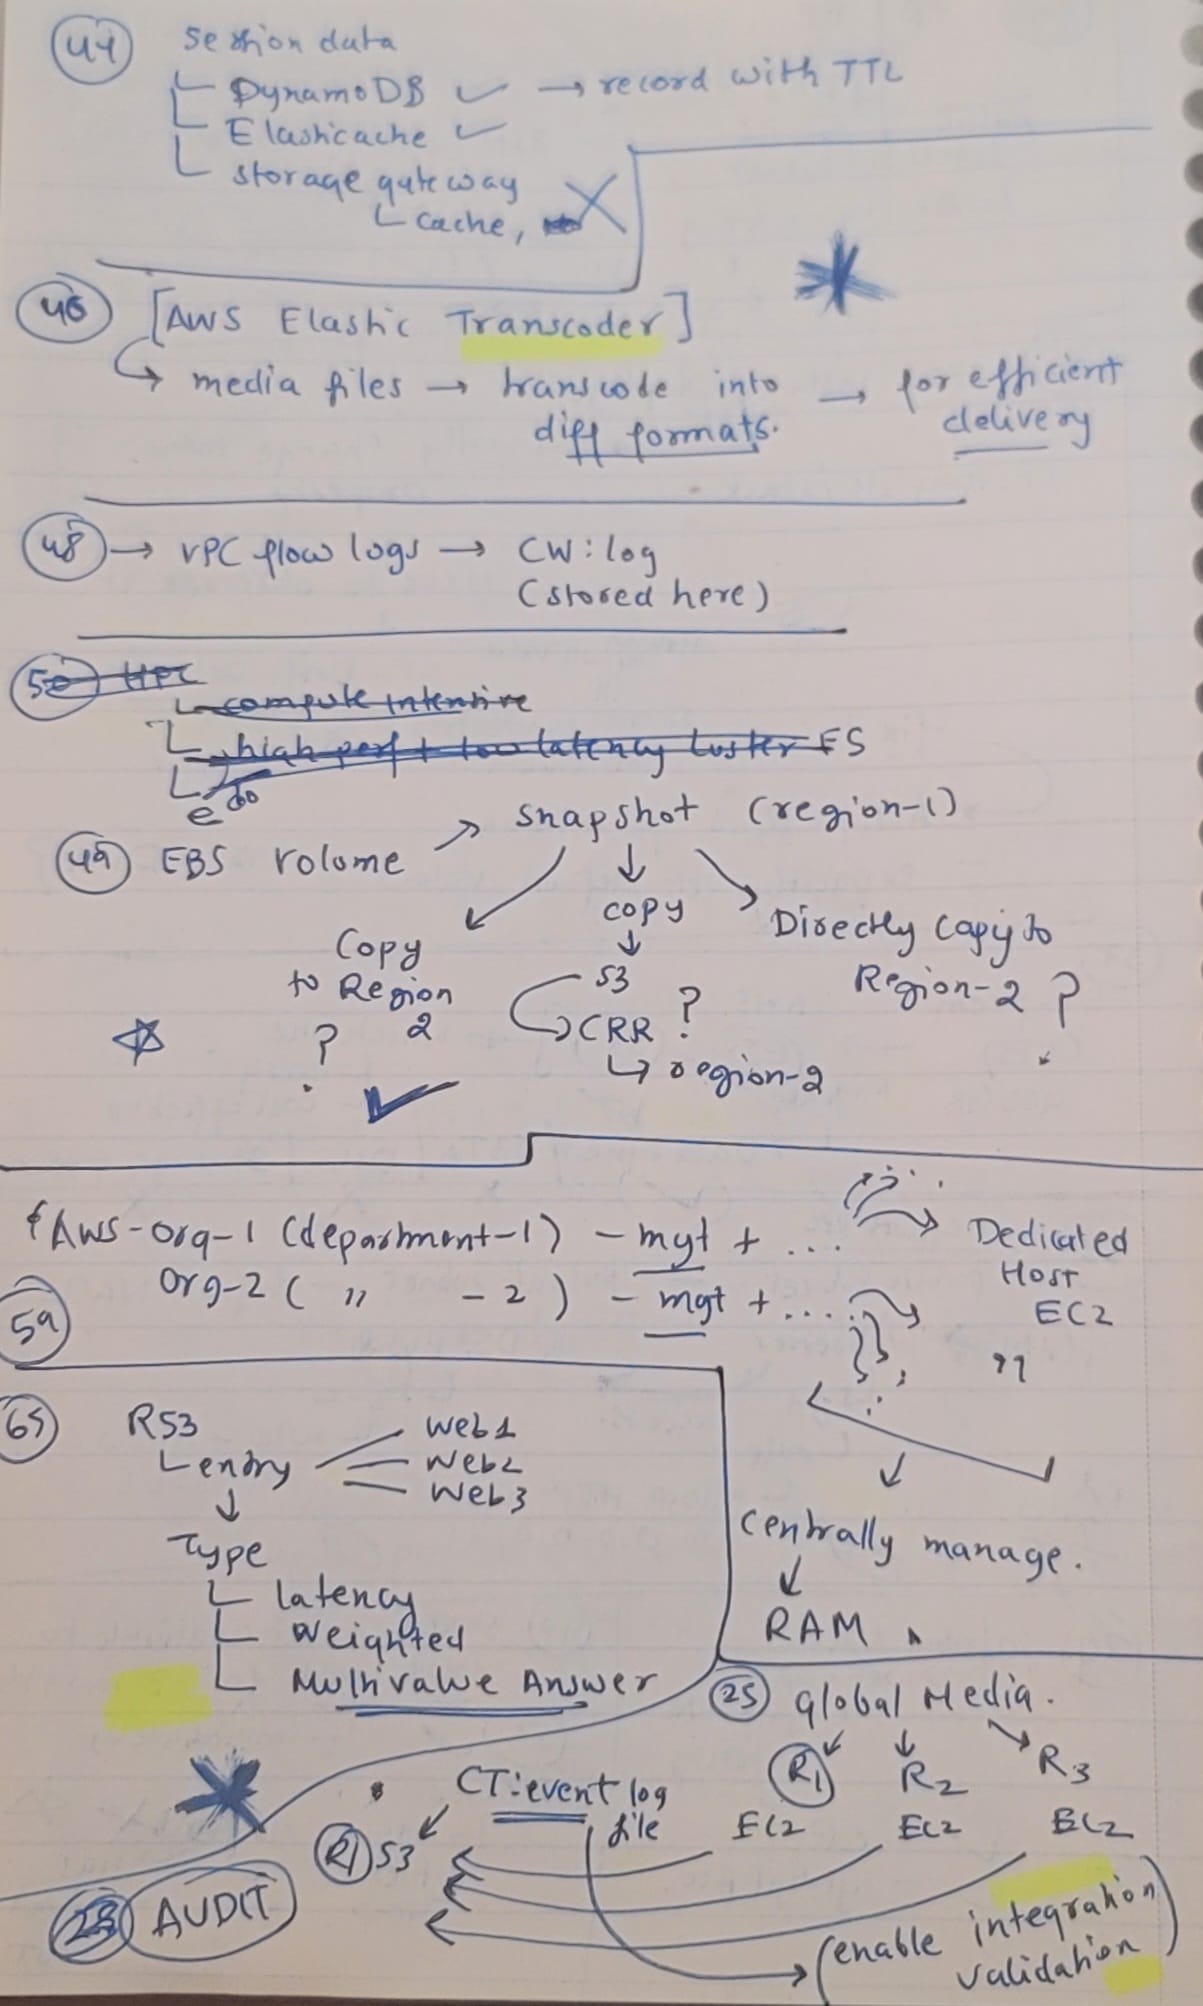 44 Session data
DynamoDB → record with TTL
Elasticache
storage gateway
cache,
46 [AWS Elastic Transcoder]
media files → transcode into → for efficient
diff formats. delivery
48 → VPC flow logs → CW:log
(stored here)
50 HPC
compute intensive
high perf + low latency luster FS
snapshot (region-1)
49 EBS volume
copy
Directly Copy to
Region-2 ?
Copy
to Region
2
?
S3
CRR ?
region-2
AWS-Org-1 (department-1) - mgt + ...
Dedicated
Host
EC2
Org-2 ( " - 2 ) - mgt + ....
59
"
65 R53
entry
Web1
Web2
Web3
Type
latency
Weighted
Multivalue Answer
Centrally manage.
RAM
25 global Media.
R1 R2 R3
EC2 EC2 EC2
CT:event log
file
R1 S3
AUDIT
(enable integration
validation)